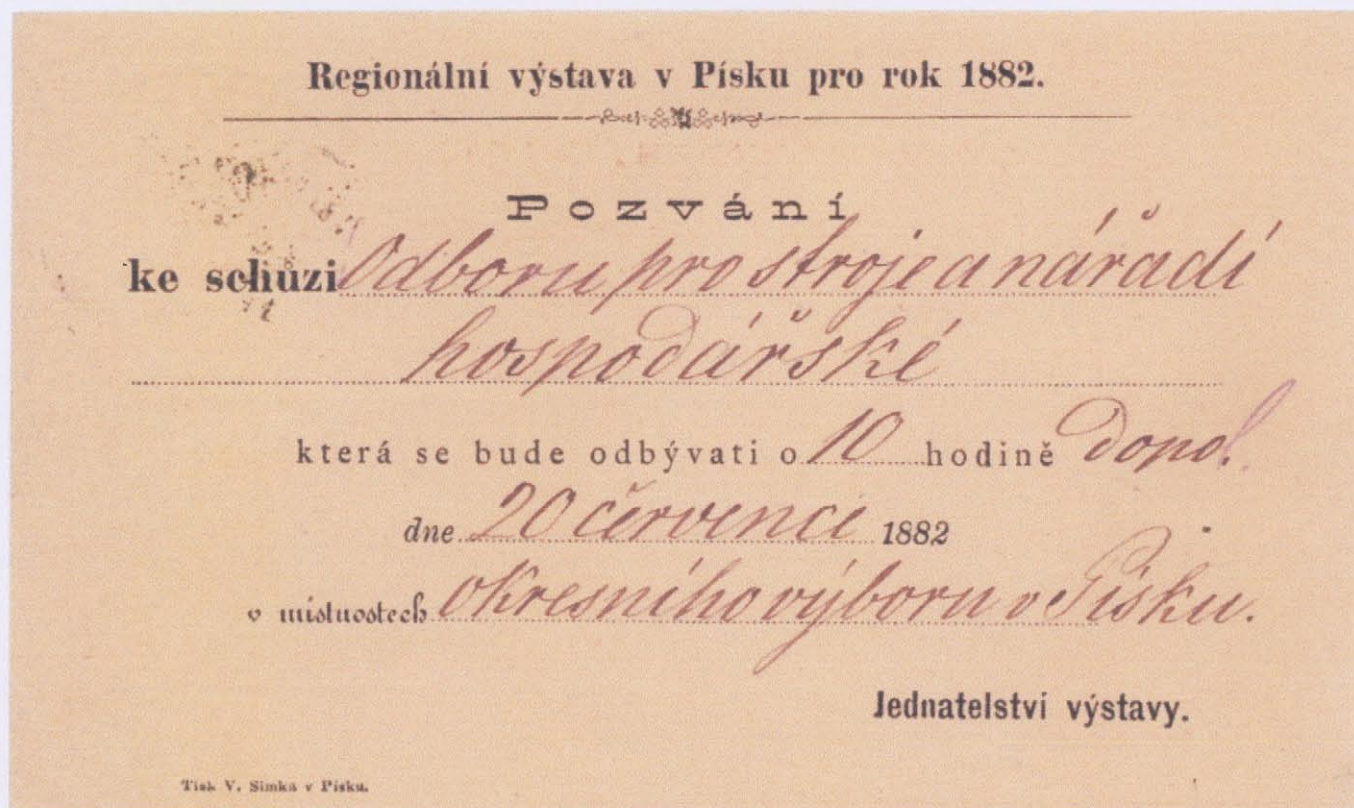 Regionální výstava v Písku pro rok 1882.
Pozvání
ke schůzi Odboru pro stroje a nářadí
hospodářské
která se bude odbývati o 10 hodině dopol.
dne 20 července 1882
v místnostech okresního výboru v Písku.
Jednatelství výstavy.
Tisk V. Simka v Písku.